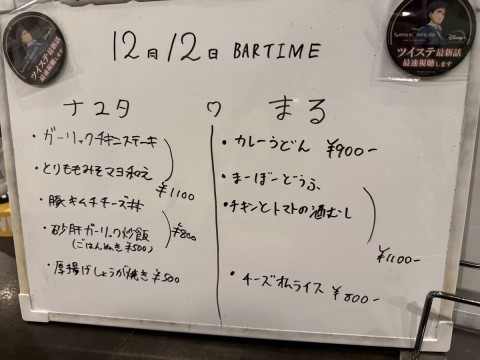 12月12日 BARTIME
ナユタ
♡
まる
・ガーリックチキンステーキ
・とりももみそマヨ和え
¥1100
・豚キムチチーズ丼
・砂肝ガーリック炒飯
(ごはんぬき¥500)
¥800
・厚揚げしょうが焼き ¥500
・カレーうどん ¥900-
・まーぼーどうふ
・チキンとトマトの酒むし
¥1100-
・チーズオムライス ¥800-
ツイステ最新話
最速視聴します
Disney+
ツイステ最新話
最速視聴します